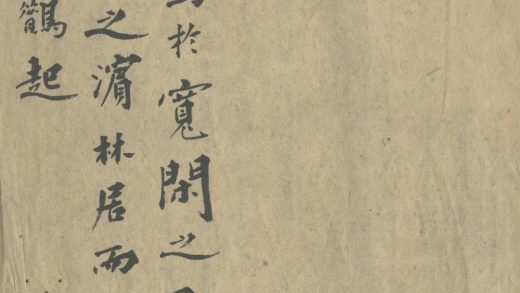 於寬閑之
之濱林居而
鶴起